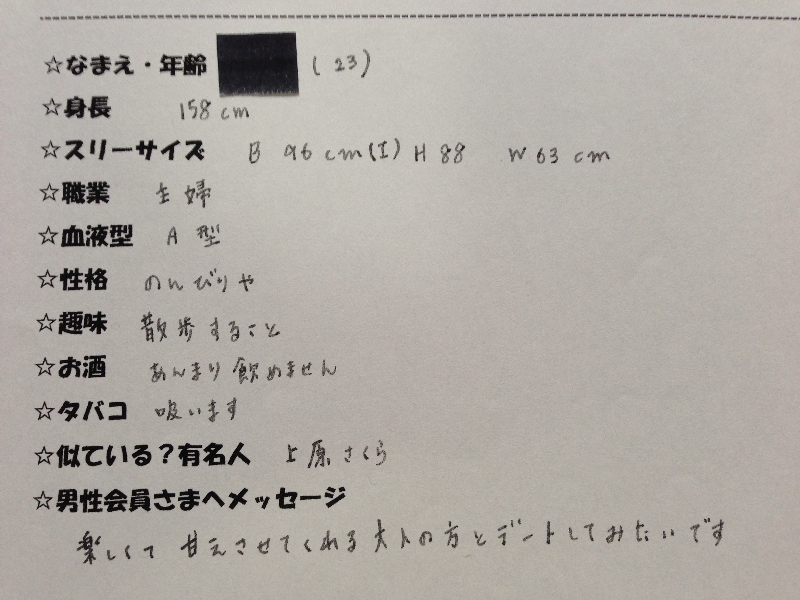 ☆なまえ・年齢 (23)
☆身長 158cm
☆スリーサイズ B 96cm(I) H 88 W 63cm
☆職業 主婦
☆血液型 A型
☆性格 のんびりや
☆趣味 散歩すること
☆お酒 あんまり飲めません
☆タバコ 吸います
☆似ている?有名人 上原さくら
☆男性会員さまへメッセージ
楽しくて 甘えさせてくれる大人の方とデートしてみたいです